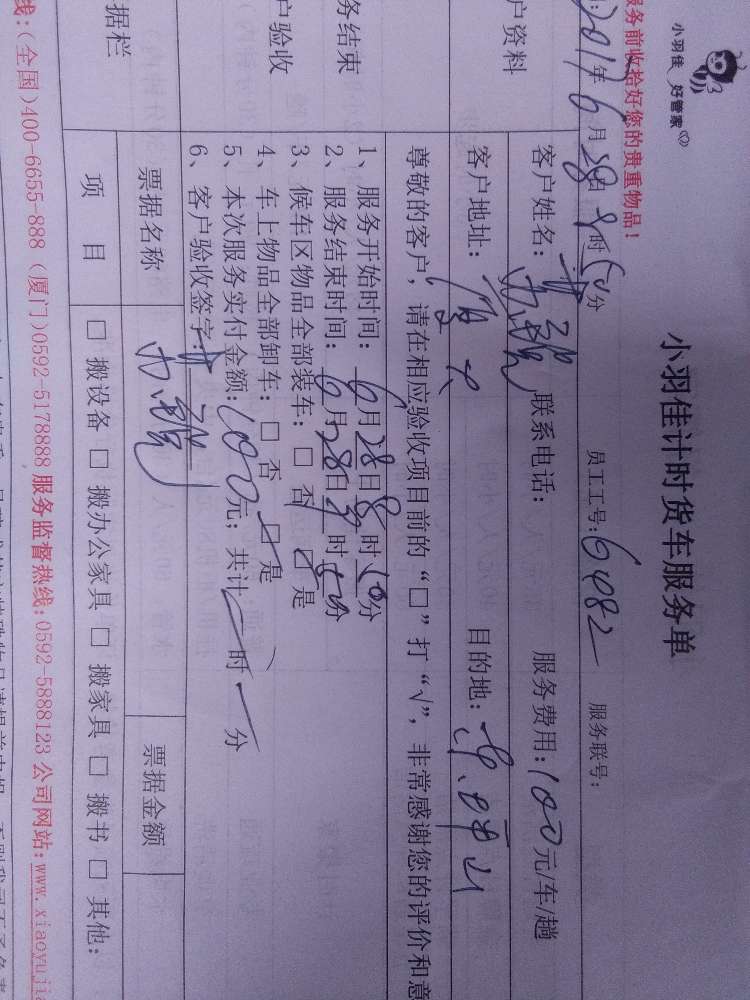 小羽佳 好管家
服务前收拾好您的贵重物品!
小羽佳计时货车服务单
年6月28日8时50分 员工工号:6482 服务联号:
户资料
客户姓名: 联系电话: 服务费用:100元/车/趟
客户地址: 目的地:
尊敬的客户,请在相应验收项目前的“□”打“√”,非常感谢您的评价和意
务结束
户验收
1、服务开始时间:6月28日8时50分
2、服务结束时间:6月28日9时50分
3、候车区物品全部装车:□ 否 ☑ 是
4、车上物品全部卸车:□ 否 ☑ 是
5、本次服务实付金额:100元;共计一时 分
6、客户验收签字:
据栏
票据名称 票据金额
项 目 □ 搬设备 □ 搬办公家具 □ 搬家具 □ 搬书 □ 其他:
线:(全国)400-6655-888 (厦门)0592-5178888 服务监督热线:0592-5888123 公司网站:www.xiaoyujia